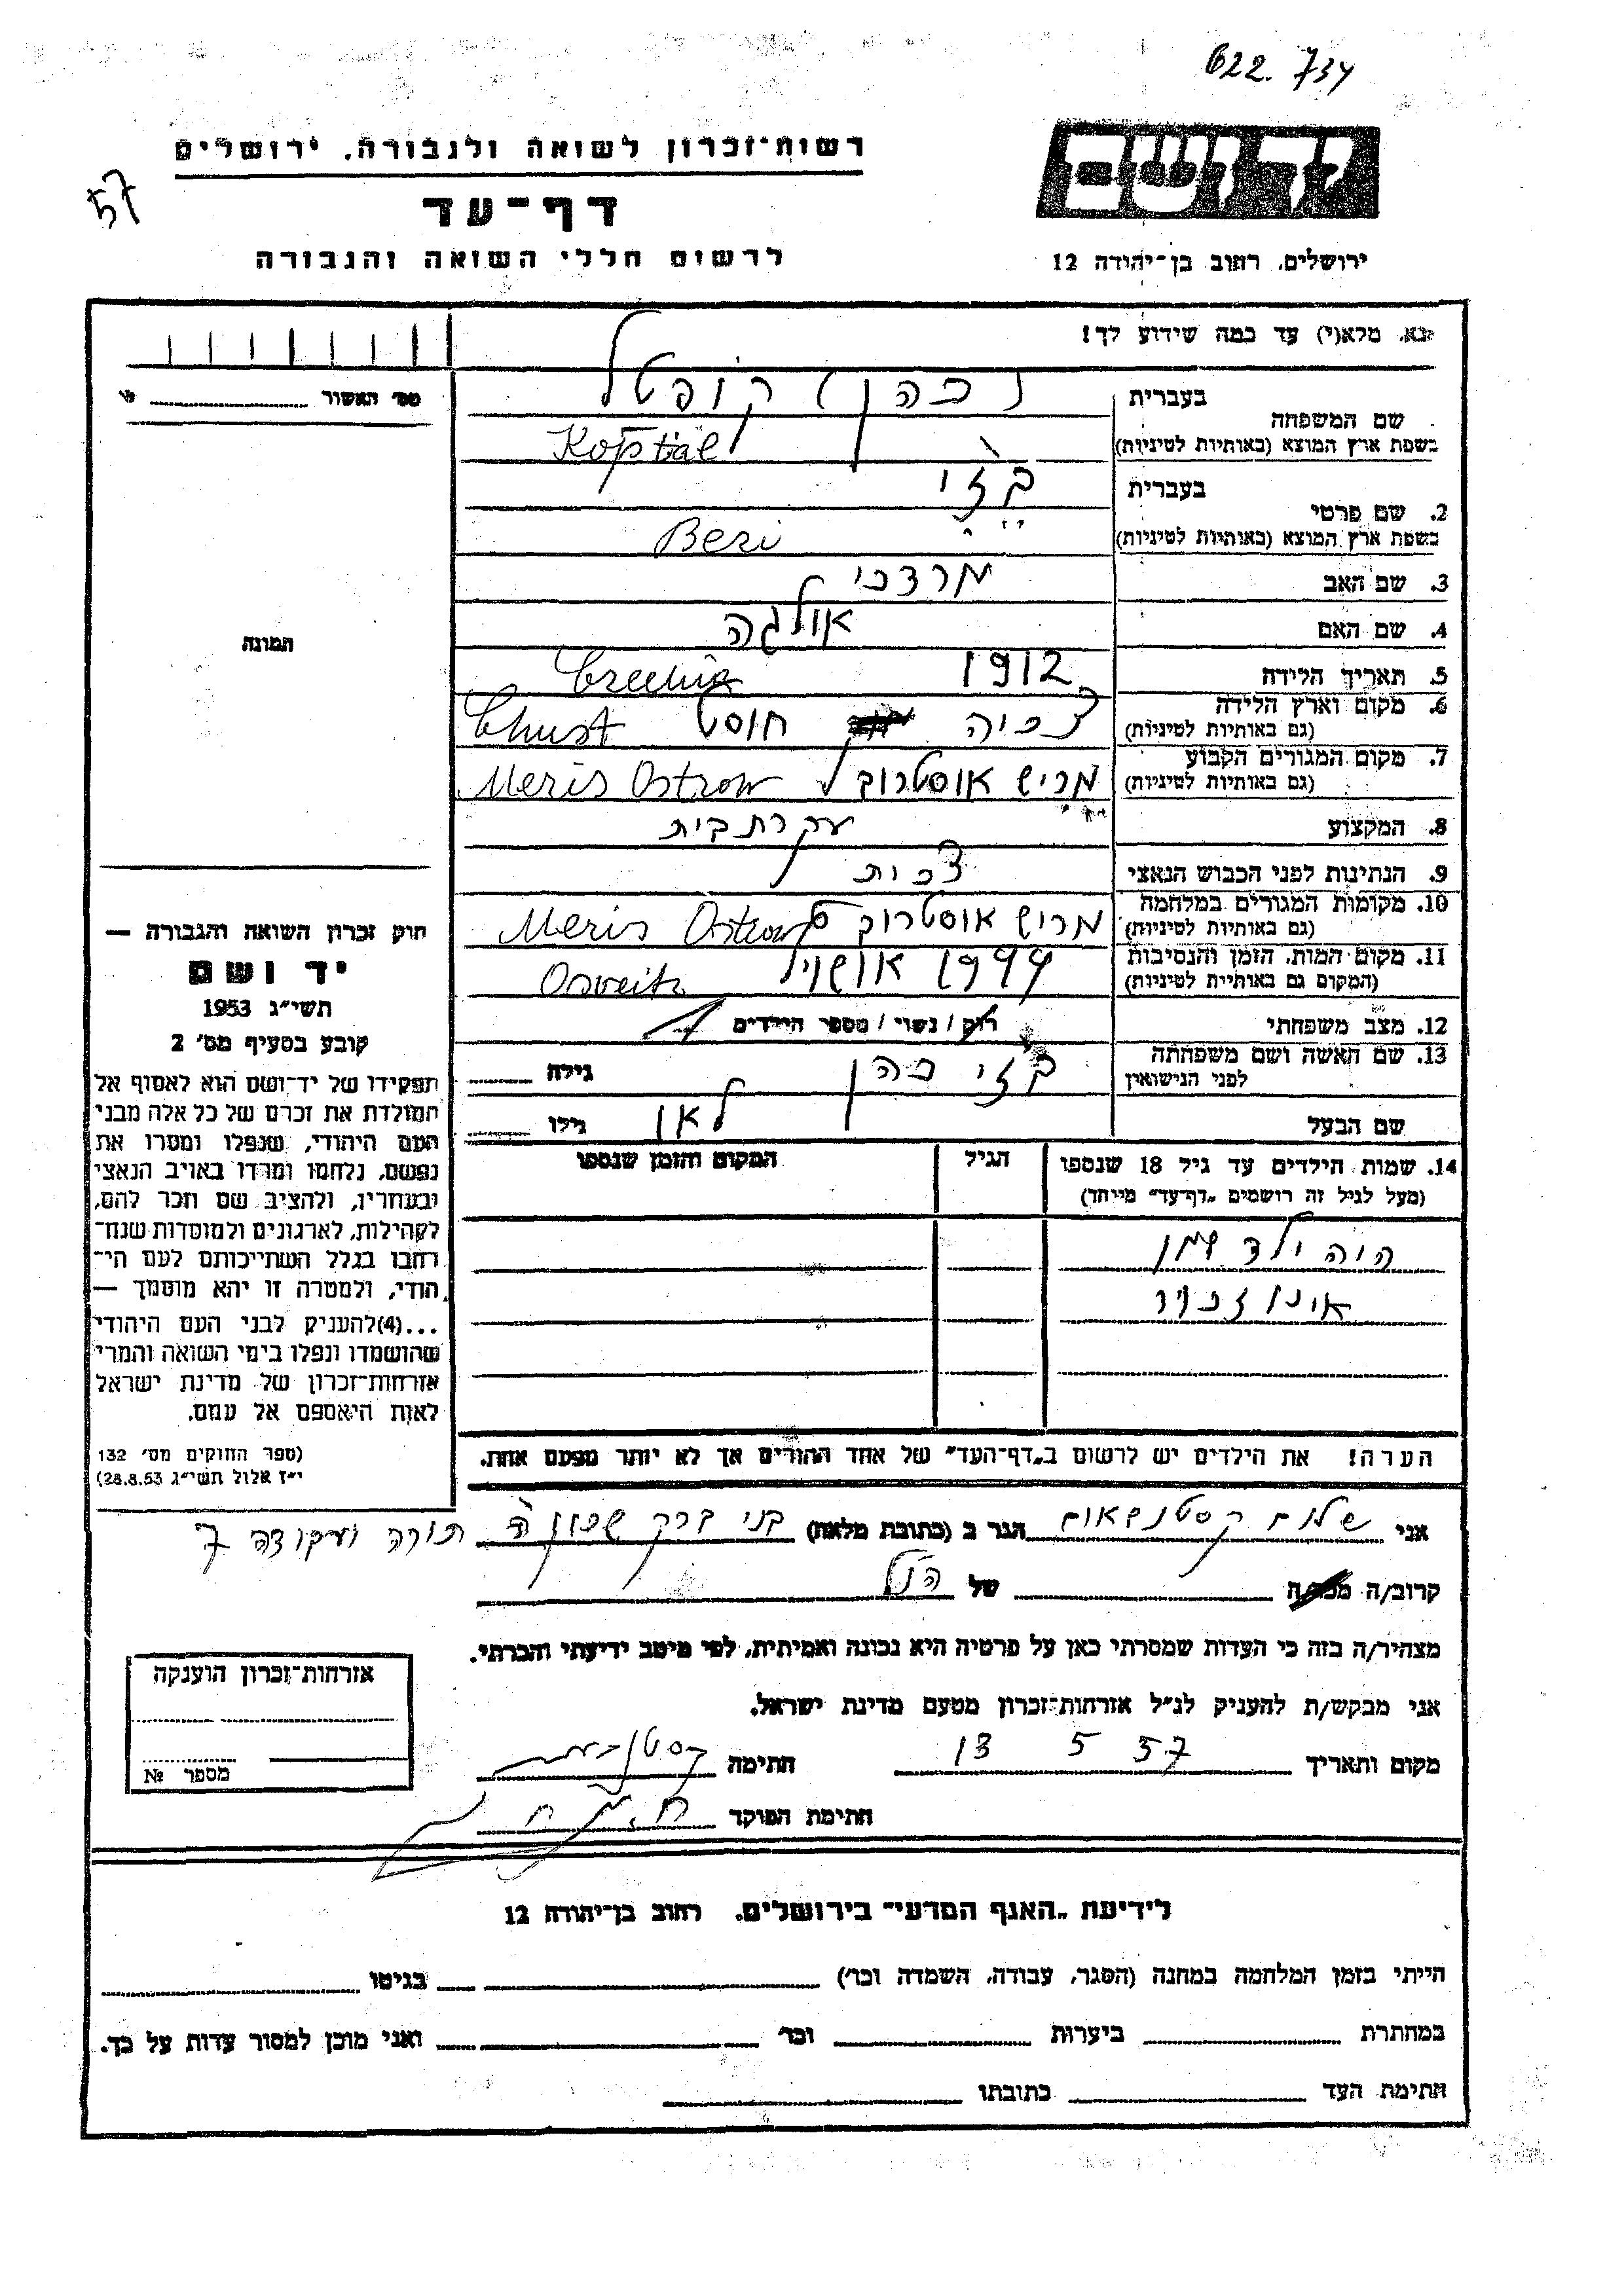 622.734
57
רשות־זכרון לשואה ולגבורה, ירושלים
דף־עד
לרשום חללי השואה והגבורה
יד ושם
ירושלים, רחוב בן־יהודה 12
נא, מלא(י) עד כמה שידוע לך!
מס׳ האשור
שם המשפחה
בעברית
(כהן) קופטל
בשפת ארץ המוצא (באותיות לטיניות)
Koptial
2. שם פרטי
בעברית
בשפת ארץ המוצא (באותיות לטיניות)
Beri
3. שם האב
מרדכי
4. שם האם
אולגה
5. תאריך הלידה
1912
6. מקום וארץ הלידה
(גם באותיות לטיניות)
חוסט Chust
7. מקום המגורים הקבוע
(גם באותיות לטיניות)
מריש אוסטרוב Meris Ostrow
8. המקצוע
עקרת בית
9. הנתינות לפני הכבוש הנאצי
צכית
10. מקומות המגורים במלחמה
(גם באותיות לטיניות)
מריש אוסטרוב Meris Ostrow
11. מקום המות, הזמן והנסיבות
(המקום גם באותיית לטיניות)
1944 Osveitz
12. מצב משפחתי
רוק / נשוי / מספר הילדים 1
13. שם האשה ושם משפחתה
לפני הנישואין
כהן
גילה
שם הבעל
לאו
גילו
14. שמות הילדים עד גיל 18 שנספו
(מעל לגיל זה רושמים „דף־עד״ מייחד)
הגיל
המקום והזמן שנספו
היה ילד קטן
אינו זכור
הערה! את הילדים יש לרשום ב„דף־העד״ של אחד ההורים אך לא יותר מפעם אחת.
תמונה
חוק זכרון השואה והגבורה —
יד ושם
תשי״ג 1953
קובע בסעיף מס׳ 2
תפקידו של יד־ושם הוא לאסוף אל
המולדת את זכרם של כל אלה מבני
העם היהודי, שנפלו ומסרו את
נפשם, נלחמו ומרדו באויב הנאצי
ובעוזריו, ולהציב שם וזכר להם,
לקהילות, לארגונים ולמוסדות שנח־
רבו בגלל השתייכותם לעם הי־
הודי, ולמטרה זו יהא מוסמך —
...(4)להעניק לבני העם היהודי
שהושמדו ונפלו בימי השואה והמרי
אזרחות־זכרון של מדינת ישראל
לאות היאספם אל עמם.
(ספר החוקים מס׳ 132
י״ז אלול תשי״ג 28.8.53)
אני שלום הגר ב (כתובת מלאה) בני ברק שכון ה תורה ועבודה 7
קרוב/ה מכר/ה של הנ״ל
מצהיר/ה בזה כי העדות שמסרתי כאן על פרטיה היא נכונה ואמיתית, לפי מיטב ידיעתי והכרתי.
אני מבקש/ת להעניק לנ״ל אזרחות־זכרון מטעם מדינת ישראל.
מקום ותאריך 13 5 57 חתימה
חתימת הפוקד
אזרחות־זכרון הוענקה
מספר №
לידיעת „האגף המדעי״ בירושלים, רחוב בן־יהודה 12
הייתי בזמן המלחמה במחנה (הסגר, עבודה, השמדה וכר׳) בגיטו
במחתרת ביערות וכר׳ ואני מוכן למסור עדות על כך.
חתימת העד כתובתו